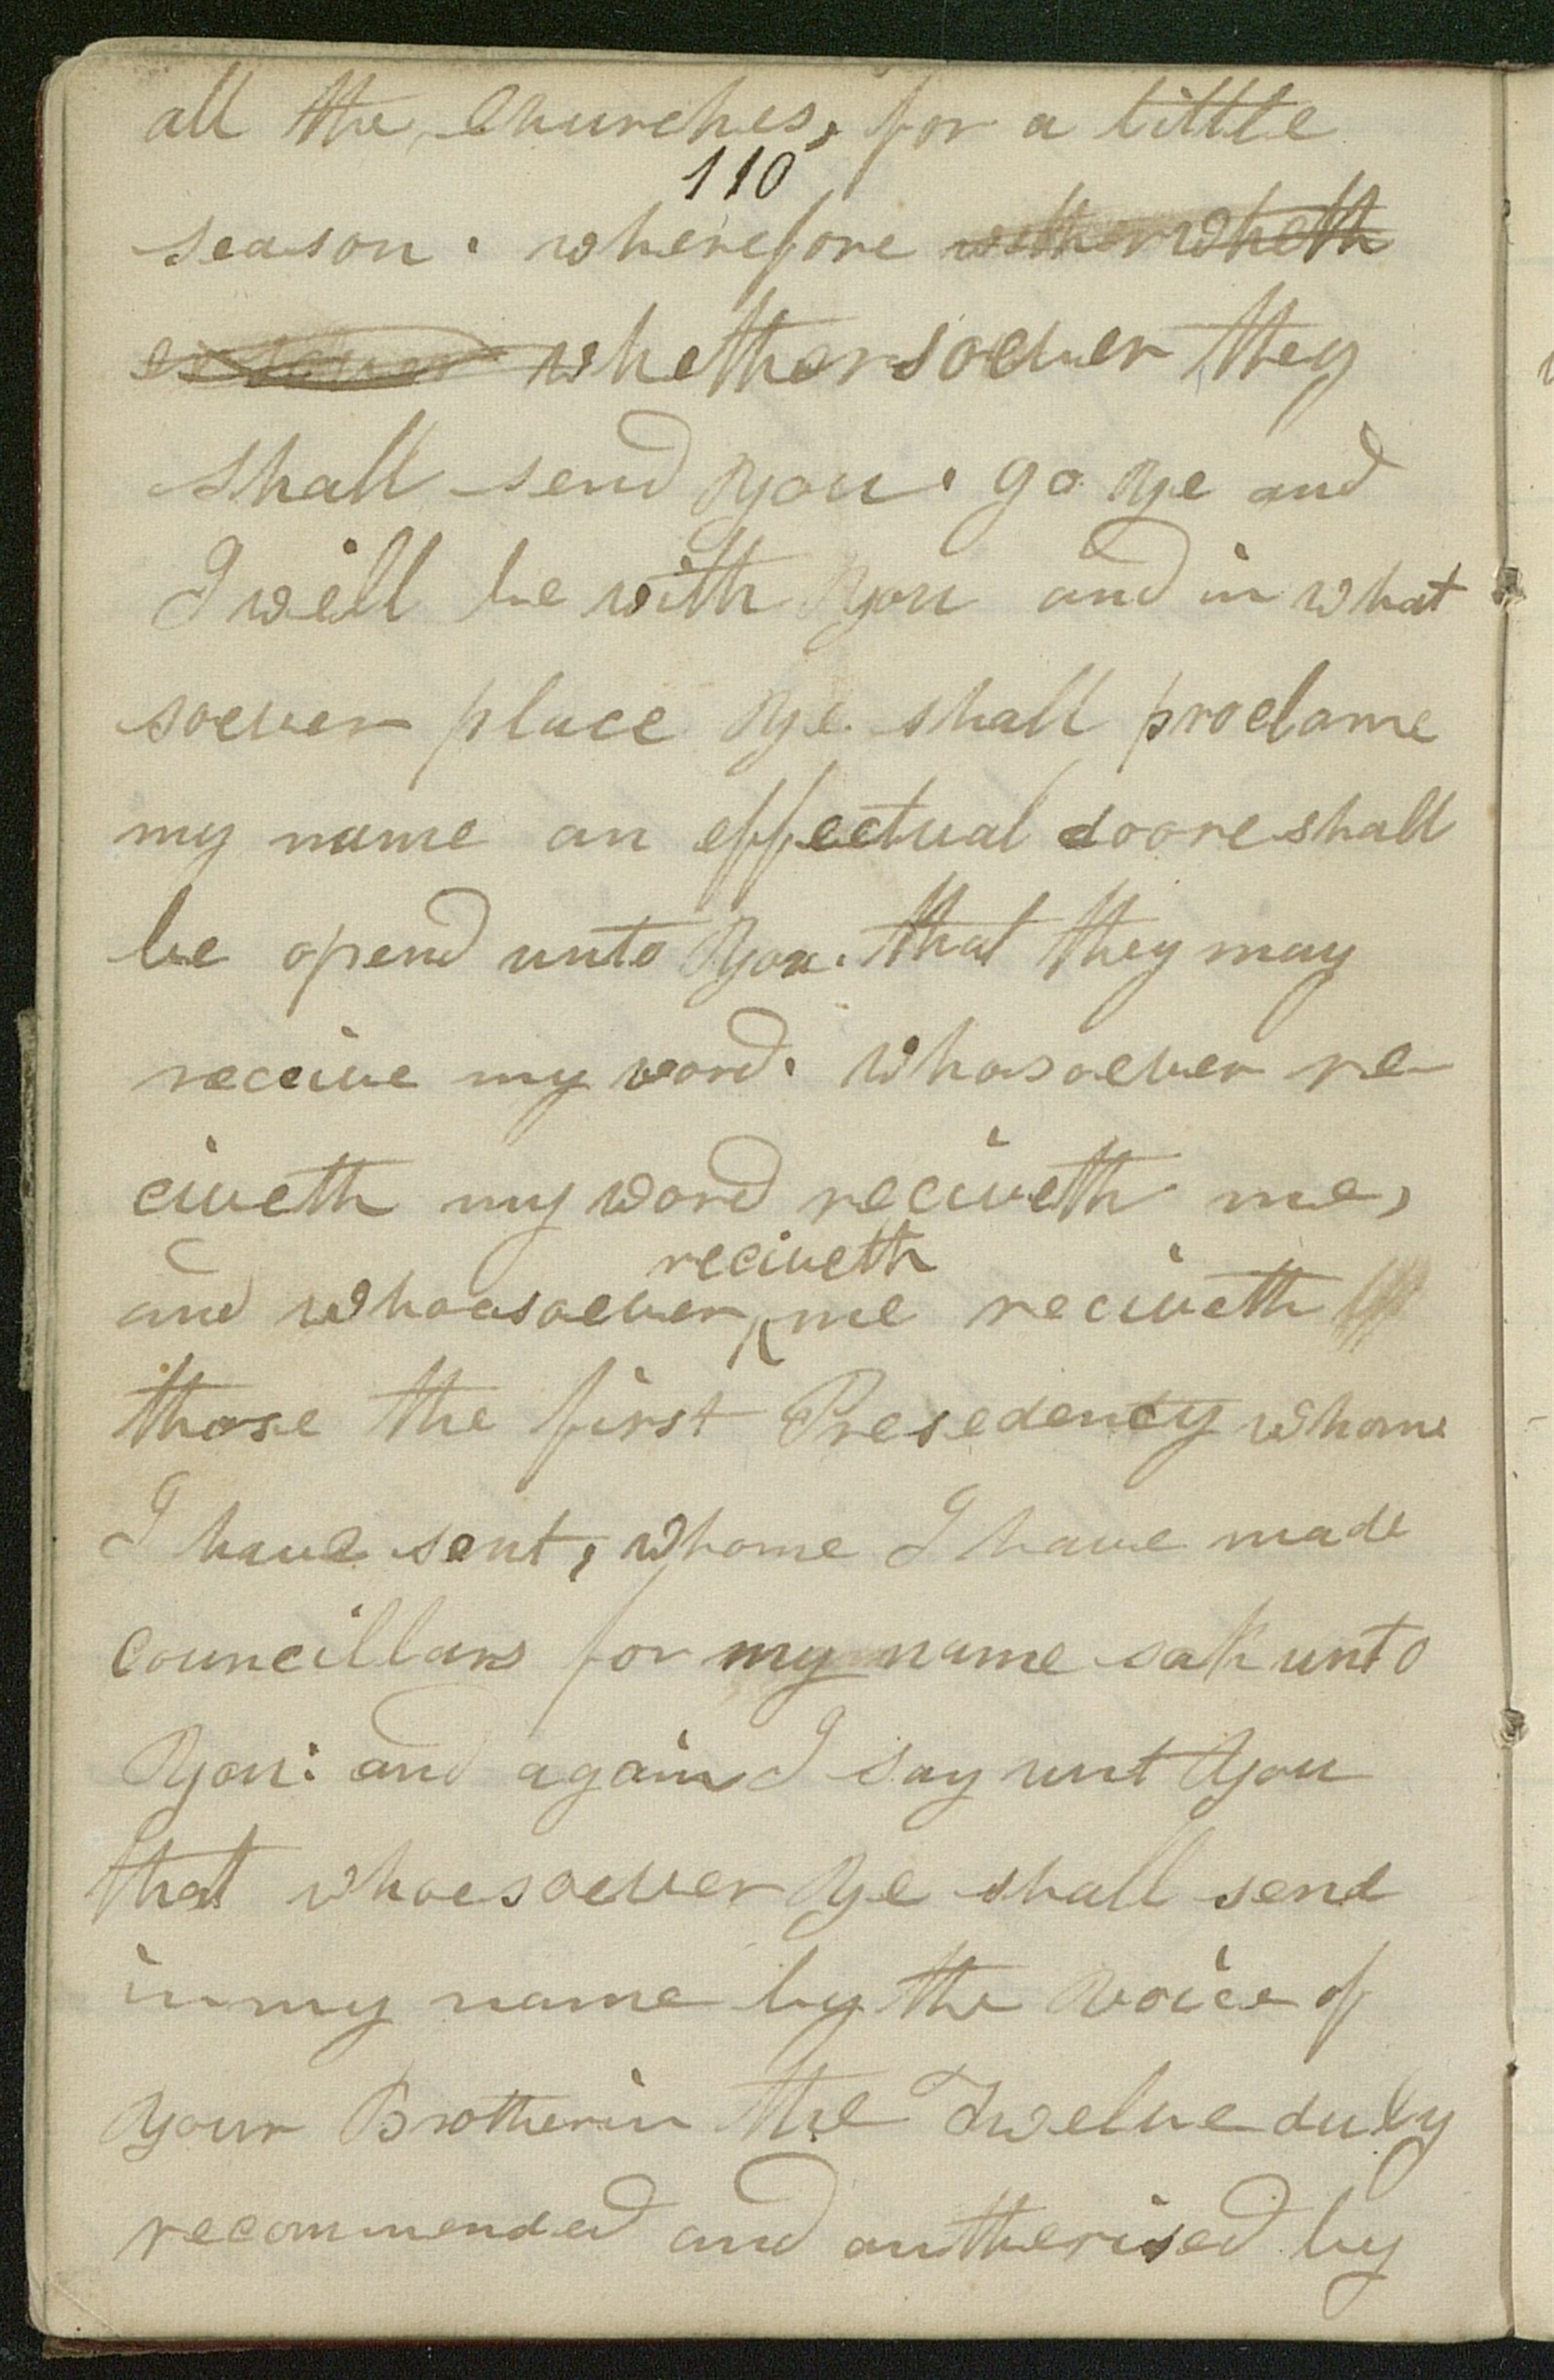 all the Churches, for a little
110
season. wherefore wether wheth
er soever whethersoever they
shall send you. go ye and
I will be with you and in what
soever place ye shall proclame
my name an effectual doore shall
be opend unto you. that they may
receive my word. whosoever re-
civeth my word reciveth me,
reciveth
and whoasoever me reciveth
those the first Presedency whome
I have sent, whome I have made
Councillars for my name sak unto
you: and again I say unt you
that whoesoever ye shall send
in my name by the voice of
your Brotherin the Twelve duly
recommended and autherised by